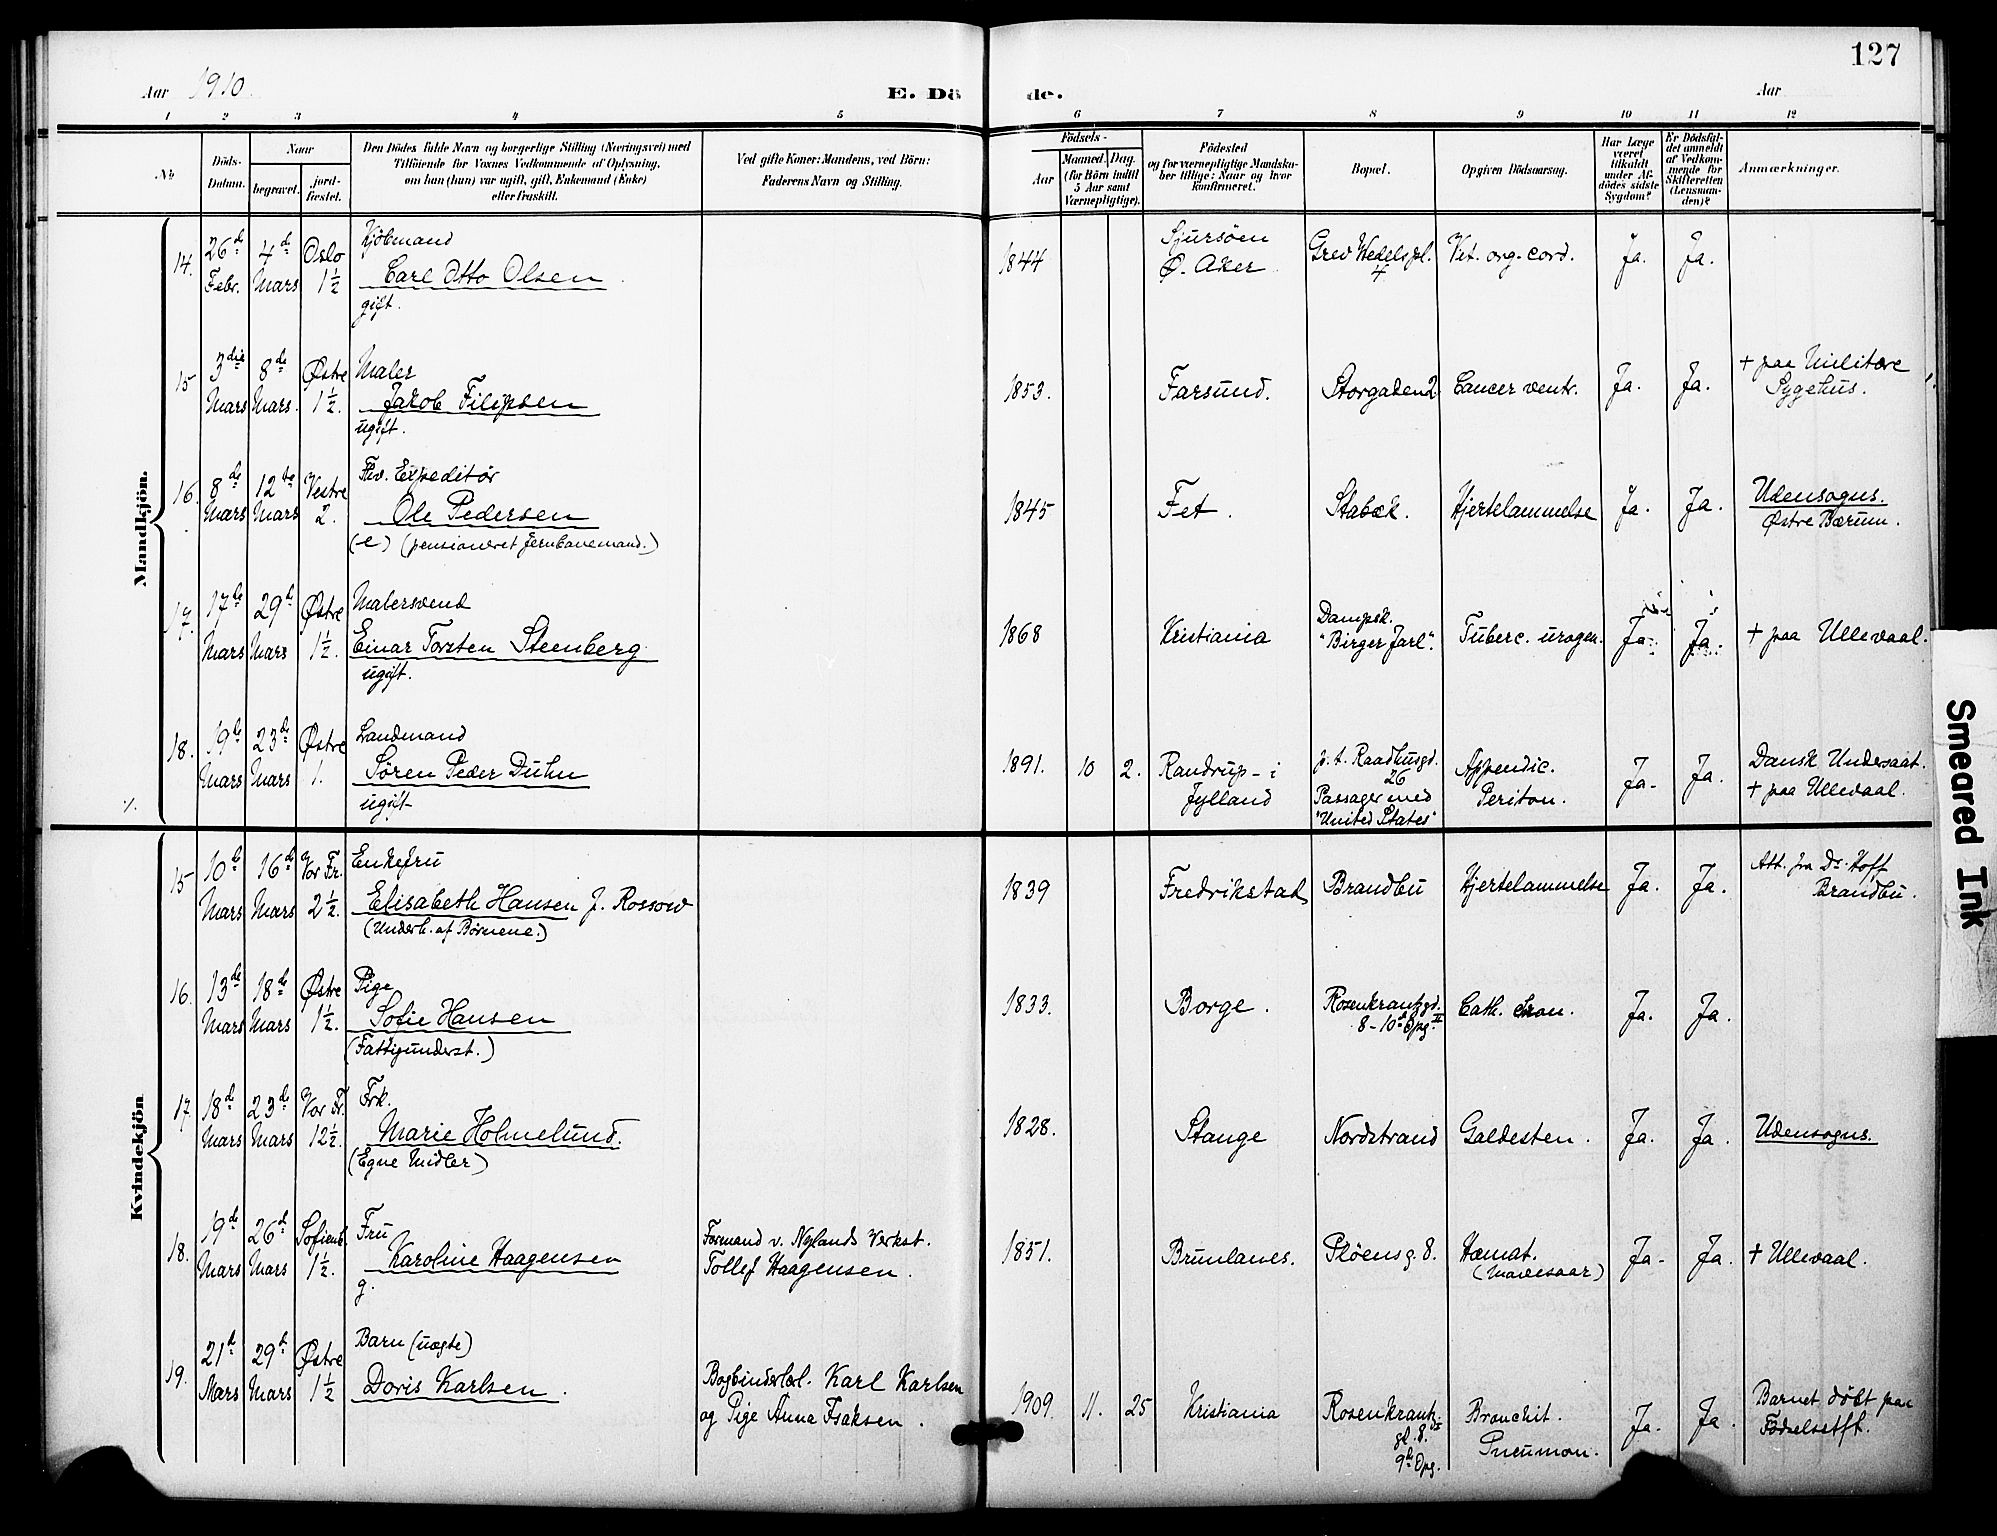 127
Aar 1910
E. Dö de.
Aar
1 2 3 4 5 6 7 8 9 10 11 12
No
Döds-
Datum.
Naar
begravet.
jord-
fæstet.
Den Dödes fulde Navn og borgerlige Stilling (Næringsvei) med
Tilföiende for Voxnes Vedkommende af Oplysning,
om han (hun) var ugift, gift, Enkemand (Enke)
eller fraskilt.
Ved gifte Koner: Mandens, ved Börn:
Faderens Navn og Stilling.
Födsels-
Aar
Maaned. Dag.
(for Börn indtil
5 Aar samt
Værnepligtige).
Födested
og for værnepligtige Mandska-
ber tillige: Naar og hvor
konfirmeret.
Bopæl.
Opgiven Dödsaarsag.
Har Læge
været
tilkaldt
under Af-
dödes sidste
Sygdom?
Er Dödsfal-
det anmeldt
af Vedkom-
mende for
Skifteretten
(Lensman-
den)?
Anmærkninger.
Mandkjön.
14. 26de Febr. 4de Mars Oslo 1½
Kjöbmand
Carl Otto Olsen
gift.
1844
Sjursöen
Ø. Aker
Grev Wedelspl.
4
Vit. org. cord.
Ja. Ja.
15 3die Mars 8de Mars. Østre 1½.
Maler
Jakob Filipsen
ugift.
1853.
Farsund.
Storgaden 2
Cancer ventr.
Ja. Ja.
+ paa Militære
Sygehus.
16. 8de Mars 12te Mars Vestre 2.
Fhv. Expeditör
Ole Pedersen
(e) (pensioneret Jernbanemand.)
1845
Fet.
Stabæk.
Hjertelammelse
Ja. Ja.
Udensogns.
Østre Bærum.
17. 17de Mars 29de Mars Østre 1½.
Malersvend
Einar Torsten Steenberg
ugift.
1868
Kristiania
Dampsk.
"Birger Jarl".
Tuberc. urogen.
Ja. Ja.
+ paa Ullevaal.
18. 19de Mars 23de Mars Østre 1.
Landmand
Sören Peder Duhn
ugift
1891. 10 2.
Randrup i
Jylland
p. t. Raadhusgd.
26
Passager med
"United States"
Appendic.
Periton.
Ja. Ja.
Dansk Undersaat.
+ paa Ullevaal.
Kvindekjön
15 10de Mars 16de Mars Vor Fr. 2½.
Enkefru
Elisabeth Hansen f. Rossow
(Underh. af Børnene.)
1839
Fredrikstad
Brandbu
Hjertelammelse
Ja. Ja.
Att. fra Dr. Hoff
Brandbu.
16. 13de Mars 18de Mars Østre 1½.
Pige
Sofie Hansen
(Fattigunderst.)
1833.
Borge.
Rosenkrantzgd.
8-10 Opg. II
Cath. kron.
Ja. Ja.
17. 18de Mars 23de Mars Vor Fr. 12½.
Frk.
Marie Holmelund.
(Egne Midler)
1828.
Stange
Nordstrand
Galdesten.
Ja. Ja.
Udensogns.
18. 19de Mars 26de Mars Sofienb. 1½.
Fru
Karoline Haagensen
g.
Formand v. Nylands Verkst.
Tollef Haagensen.
1851.
Brunlanes.
Plöensg. 8.
Hæmat.
(Mavesaar)
Ja. Ja.
+ Ullevaal.
19. 21de Mars 29de Mars Østre 1½
Barn (uægte)
Doris Karlsen.
Bogbinderlærl. Karl Karlsen
og Pige Anna Isaksen.
1909. 11. 25
Kristiania
Rosenkrantz
gd. 8.
9de Opg.
Bronchit.
Pneumon.
Ja. Ja
Barnet döbt paa
Födselsstft.
Smeared Ink